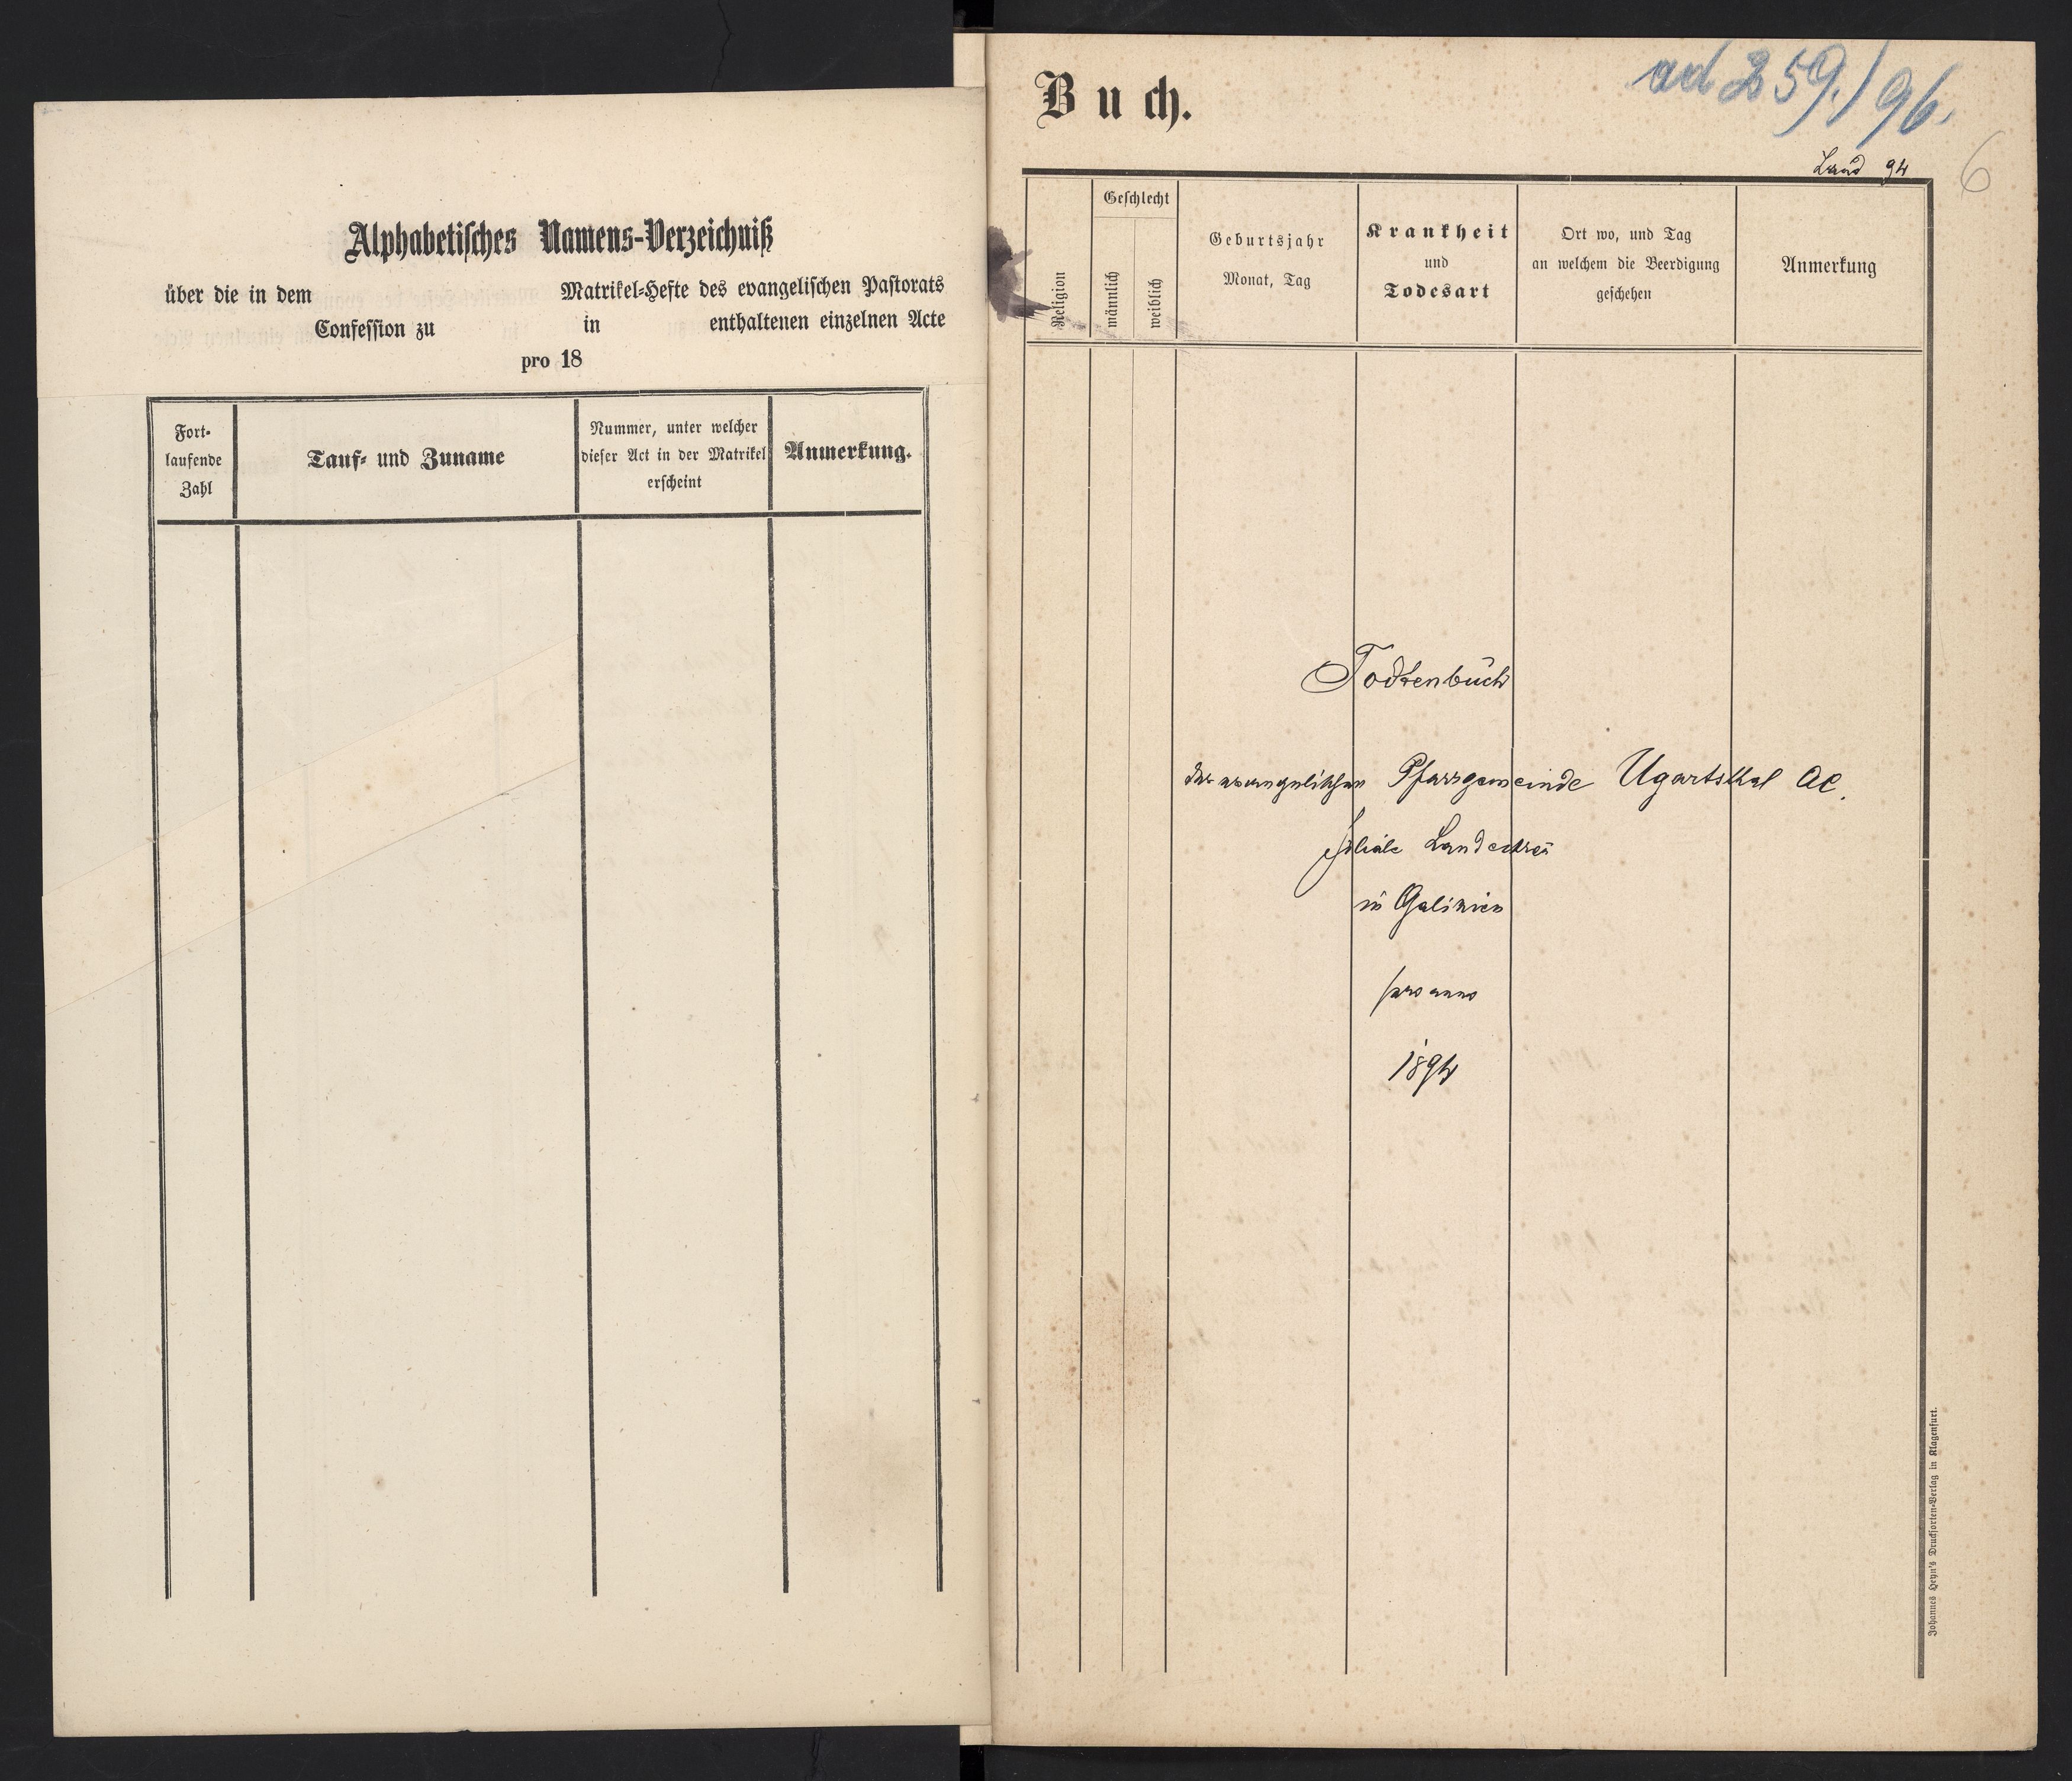 Alphabetisches Namens-Verzeichniß
über die in dem Matrikel-Hefte des evangelischen Pastorats
Confession zu in enthaltenen einzelnen Acte
pro 18
Fort-
laufende
Zahl
Tauf- und Zuname
Nummer, unter welcher
dieser Act in der Matrikel
erscheint
Anmerkung.
Buch.
ad 259./96.
Land 94
6
Religion
Geschlecht
männlich
weiblich
Geburtsjahr
Monat, Tag
Krankheit
und
Todesart
Ort wo, und Tag
an welchem die Beerdigung
geschehen
Anmerkung
Todtenbuch
der evangelischen Pfarrgemeinde Ugartsthal AC.
Filiale Landestreu
in Galizien
pro anno
1894
Johannes Heyn's Drucksorten-Verlag in Klagenfurt.